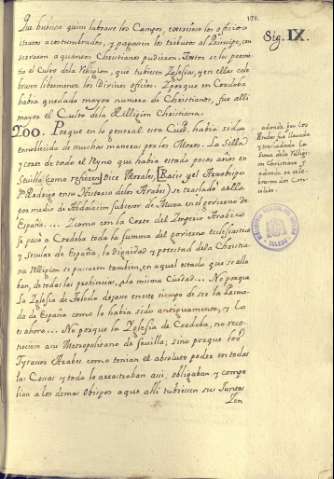 178.
Sig. IX.
Que hubiese quien labrase los Campos, exerciese los oficios
acostumbrados, y pagasen los tributos al Principe, con
servaron a quantos Christianos pudieron. Entre ellos permi
tio el Culto de la Religion, que tubiesen Iglesias, y en ellas cele
brasen los Divinos oficios. Y porque en Cordoba
habia quedado mayor numero de Christianos, fue alli
mayor el Culto de la Religion Christiana.
Too. Porque en lo general esta Ciud. habia sido
ennoblecida de muchas maneras por los Moros. La Silla
y corte de todo el Reyno que habia estado pocos años en
Sevilla (como refieren dice Morales, Rasis y el Arzobispo
Dn. Rodrigo en su Historia de los Arabes) se traslado alla
por medio de Abdalazin subcesor de en el govierno de
España.... Y como con la Corte del Imperio Arabico
se paso a Cordoba toda la summa del govierno eclesiastico
y secular de España, la Dignidad y potestad de la Christia
na Religion se paso en tambien, en aquel estado que se alla
ban, de todas las provincias, a la misma Ciudad... No porque
la Iglesia de Toledo dejase en este tiempo de ser la Prima
da de España como lo habia sido antiguamente, y lo
es ahora... No porque la Iglesia de Cordoba, no reco
nociese a su Metropolitano de Sevilla; sino porque los
Tyranos Arabes como tenian el absoluto poder en todas
las Cosas y todo lo atraian a si, obligaban y compe
lian a los demas Obispos a que alli tubiesen sus Juntas
Con
adonde por los
Arabes fue llevada
y trasladada la
suma de la Religi
on Christiana y
adonde se cele
braron dos Con
cilios.